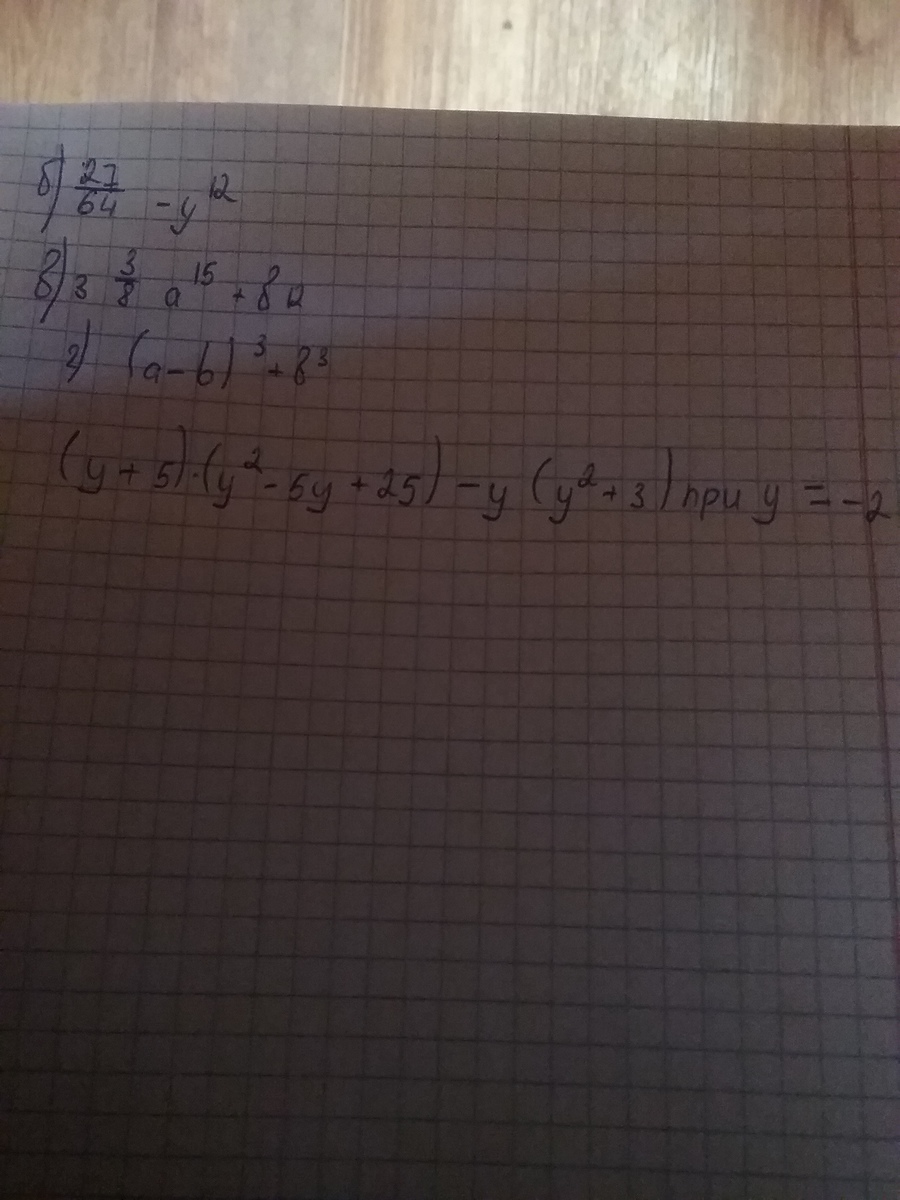 б) 27/64 - y^12
в) 3 3/8 a^15 + b^12
г) (a - b)^3 + b^3
(y + 5)·(y^2 - 5y + 25) - y (y^2 + 3) при y = -2